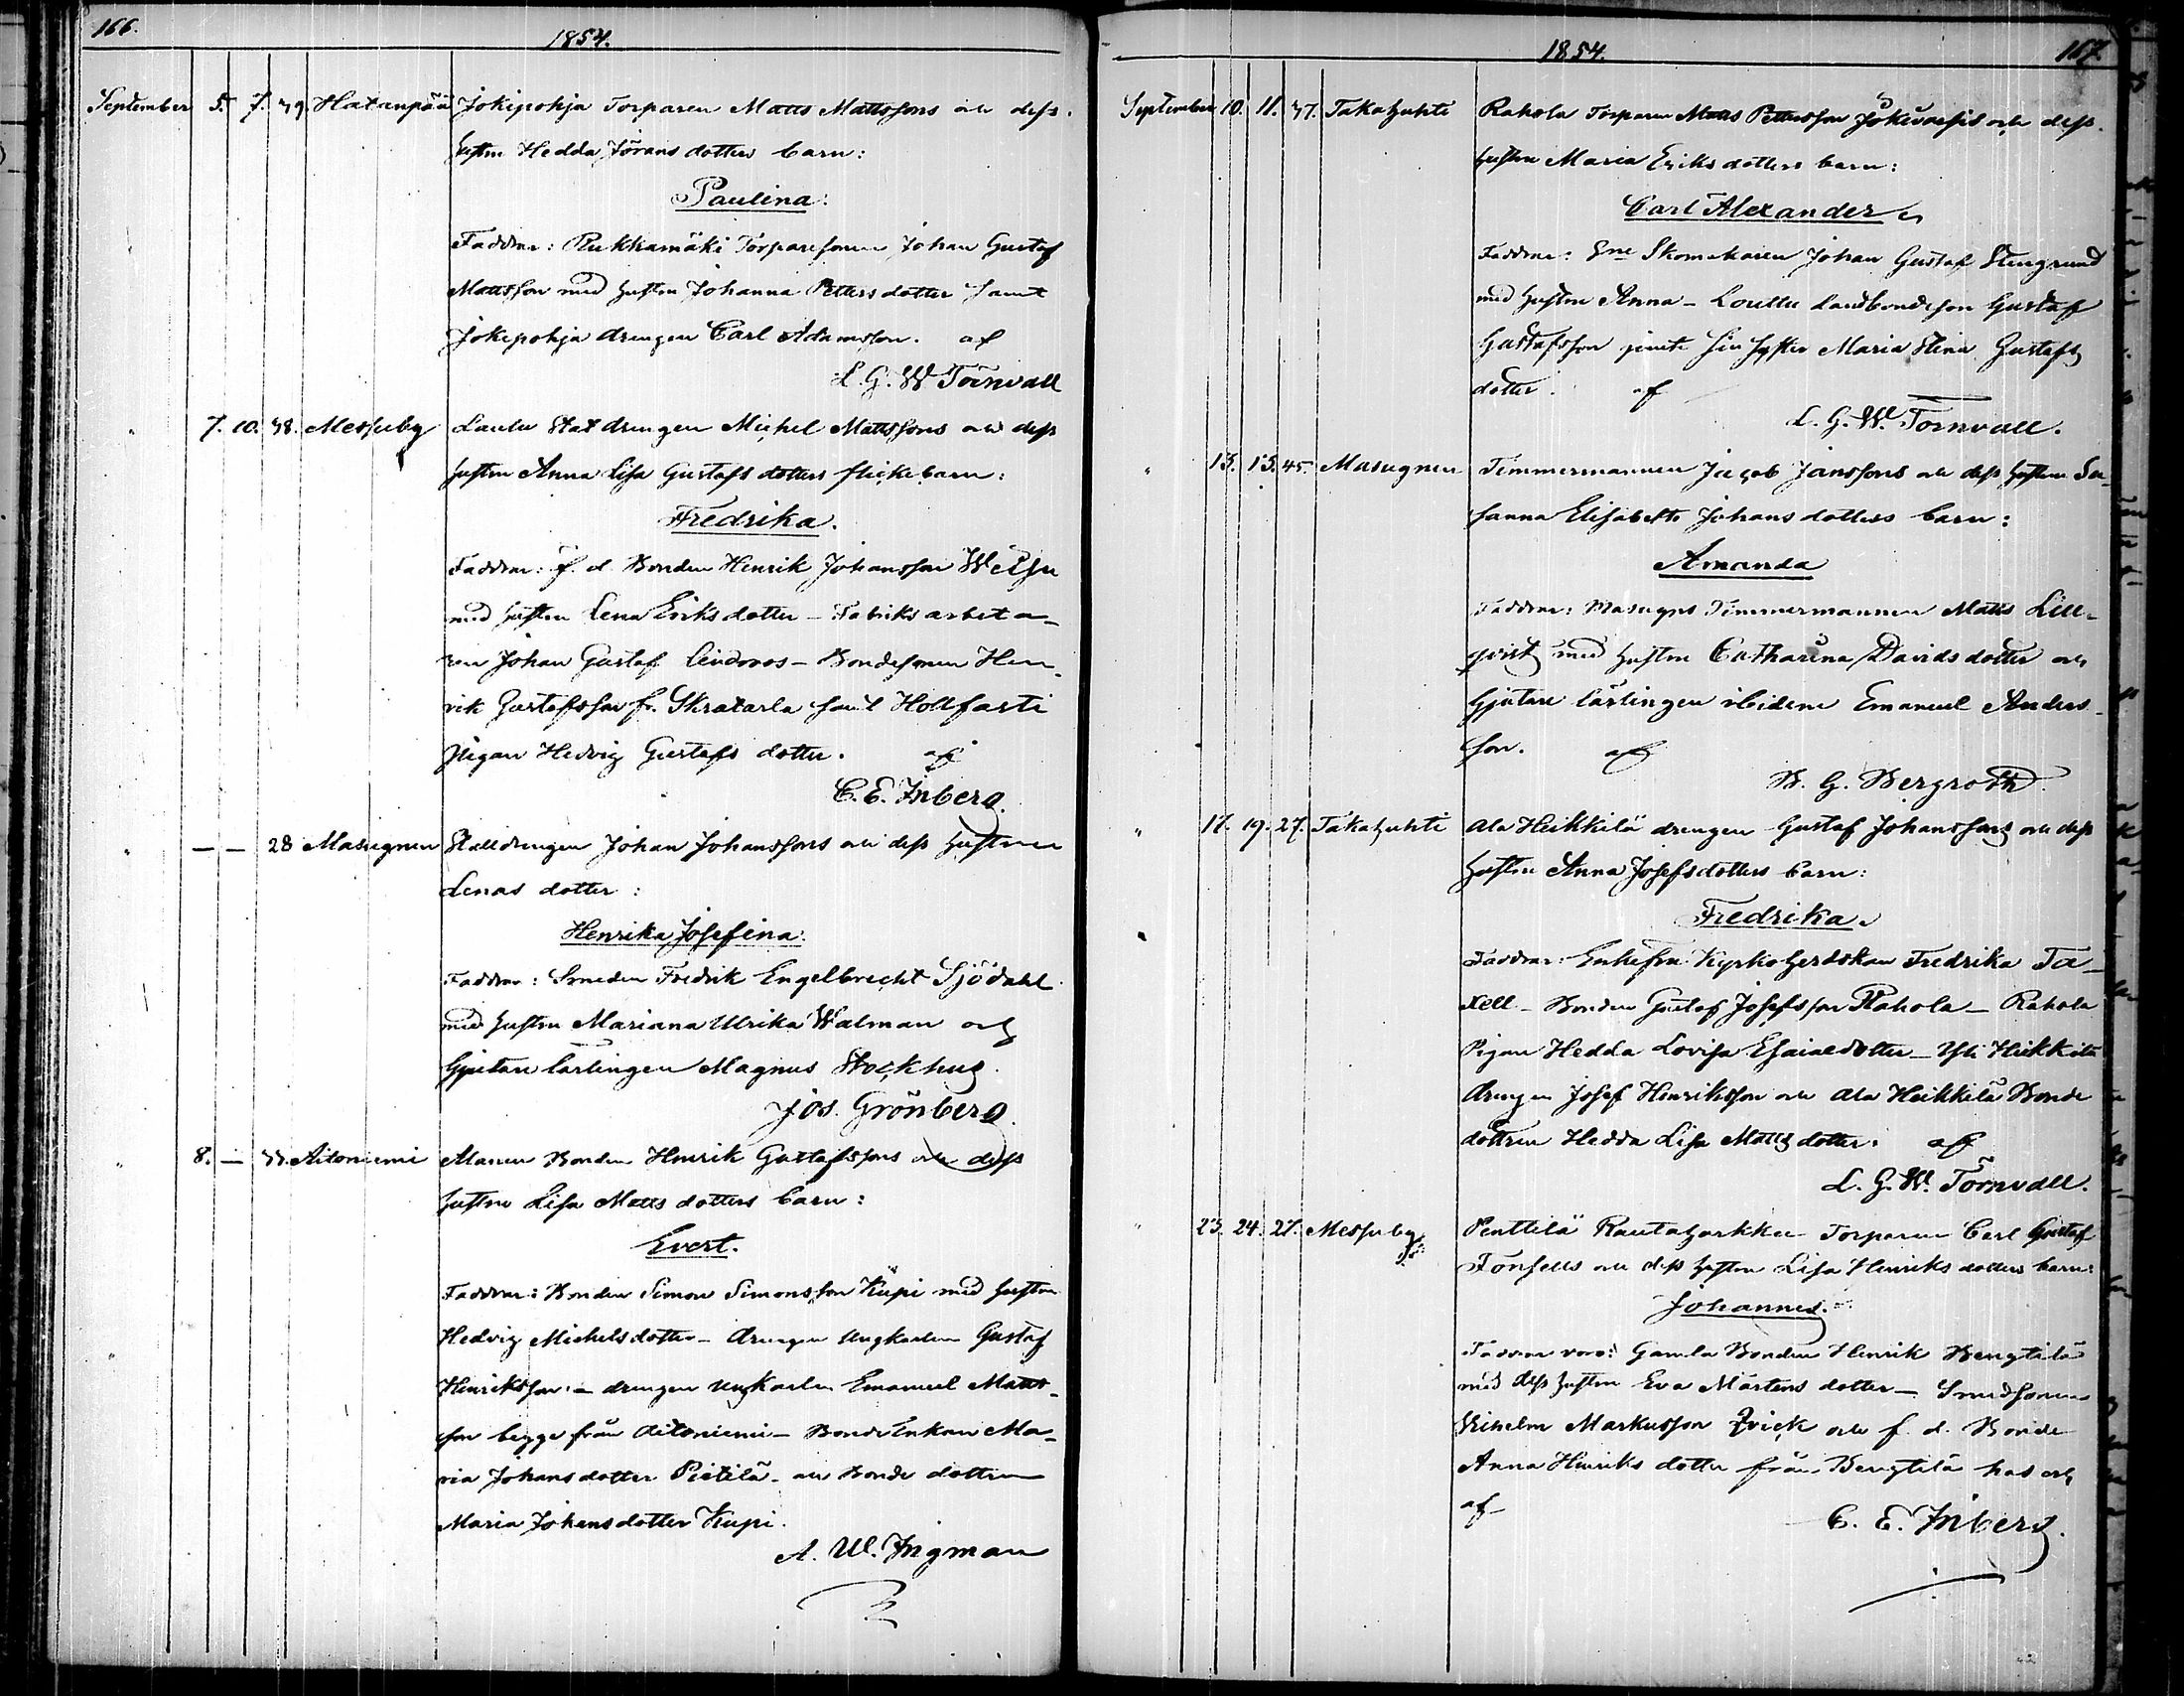 166.
1854.
September 5. 7. 39 Hatanpää Jokipohja Torparen Matts Mattssons och dess
hustru Hedda Jörans dotters barn:
Paulina:
Faddrar: Rukkamäki Torparesonen Johan Gustaf
Mattsson med hustru Johanna Petters dotter samt
Jokipohja drengen Carl Adamsson. af
L. G. W. Törnvall
" 7. 10. 38. Messuby Laulu Stat drengen Michel Mattssons och dess
hustru Anna Lisa Gustafs dotters flickebarn:
Fredrika.
Faddrar: f. d. Bonden Henrik Johansson
med hustru Lena Eriks dotter – Fabriks arbeta-
ren Johan Gustaf Lindroos – Bondesonen Hen-
rik Gustafsson fr. samt
Pigan Hedvig Gustafs dotter. af
C. E. Inberg.
" — — 28 Masugnen Stalldrengen Johan Johanssons och dess hustru
Lenas dotter:
Henrika Josefina:
Faddrar: Smeden Fredrik Engelbrecht Sjödahl
med hustru Mariana Ulrika Walman och
Gjutare lärlingen Magnus Stockhus.
Jos. Grönberg.
" 8. — 33. Aitoniemi Bonden Henrik Gustafssons och dess
hustru Lisa Matts dotters barn:
Evert.
Faddrar: Bonden Simon Simonsson Kupi med hustru
Hedvig Michels dotter – drengen ungkarlen Gustaf
Henriksson – drengen ungkarlen Emanuel Matts-
son begge från Aitoniemi – Bonde Enkan Ma-
ria Johans dotter Pietilä – och Bonde dottren
Maria Johans dotter Kupi.
A. W. Ingman
1854.
167.
September 10. 11. 37. Takahuhti Rahola Torparen Matts Pettersson och dess
hustru Maria Eriks dotters barn:
Carl Alexander
Faddrar: Skomakaren Johan Gustaf Stengrund
med hustru Anna – Landbondeson Gustaf
Gustafsson jemte sin syster Maria Stina Gustafs
dotter. af
L. G. W. Törnvall.
" 13. 15. 45. Masugnen Timmermannen Jacob Janssons och dess hustru Su-
sanna Elisabeth Johans dotters barn:
Amanda
Faddrar: Masugns Timmermannen Matts Lill-
qvist med hustru Catharina Davids dotter och
Gjutare lärlingen ibidem Emanuel Anders-
son. af
B. G. Bergroth.
" 17. 19. 27. Takahuhti Ala Heikkilä drengen Gustaf Johanssons och dess
hustru Anna Josefsdotters barn:
Fredrika.
Faddrar: Enkefru Kyrkoherdskan Fredrika Ta-
xell – Bonden Gustaf Josefsson Rahola – Rahola
Pigan Hedda Lovisa Esaiaedotter – Yli Heikkilä
drengen Josef Henriksson och Ala Heikkilä Bonde
dottren Hedda Lisa Matts dotter. af
L. G. W. Törnvall.
" 23. 24. 27. Messuby Penttilä Rautaharkka Torparen Carl Gustaf
Forsells och dess hustru Lisa Henriks dotters barn:
Johannes.
Faddrar voro: Gamla Bonden Henrik Bengtilä
med dess hustru Eva Mårtens dotter – Smedsonen
Wilhelm Markusson Qvick och f. d. Bonde
Anna Henriks dotter från Bengtilä
af
C. E. Inberg.